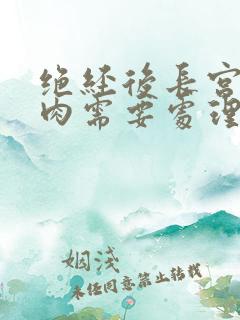 绝经後長宫
肉需要處理
姻淺
未经同意禁止转载